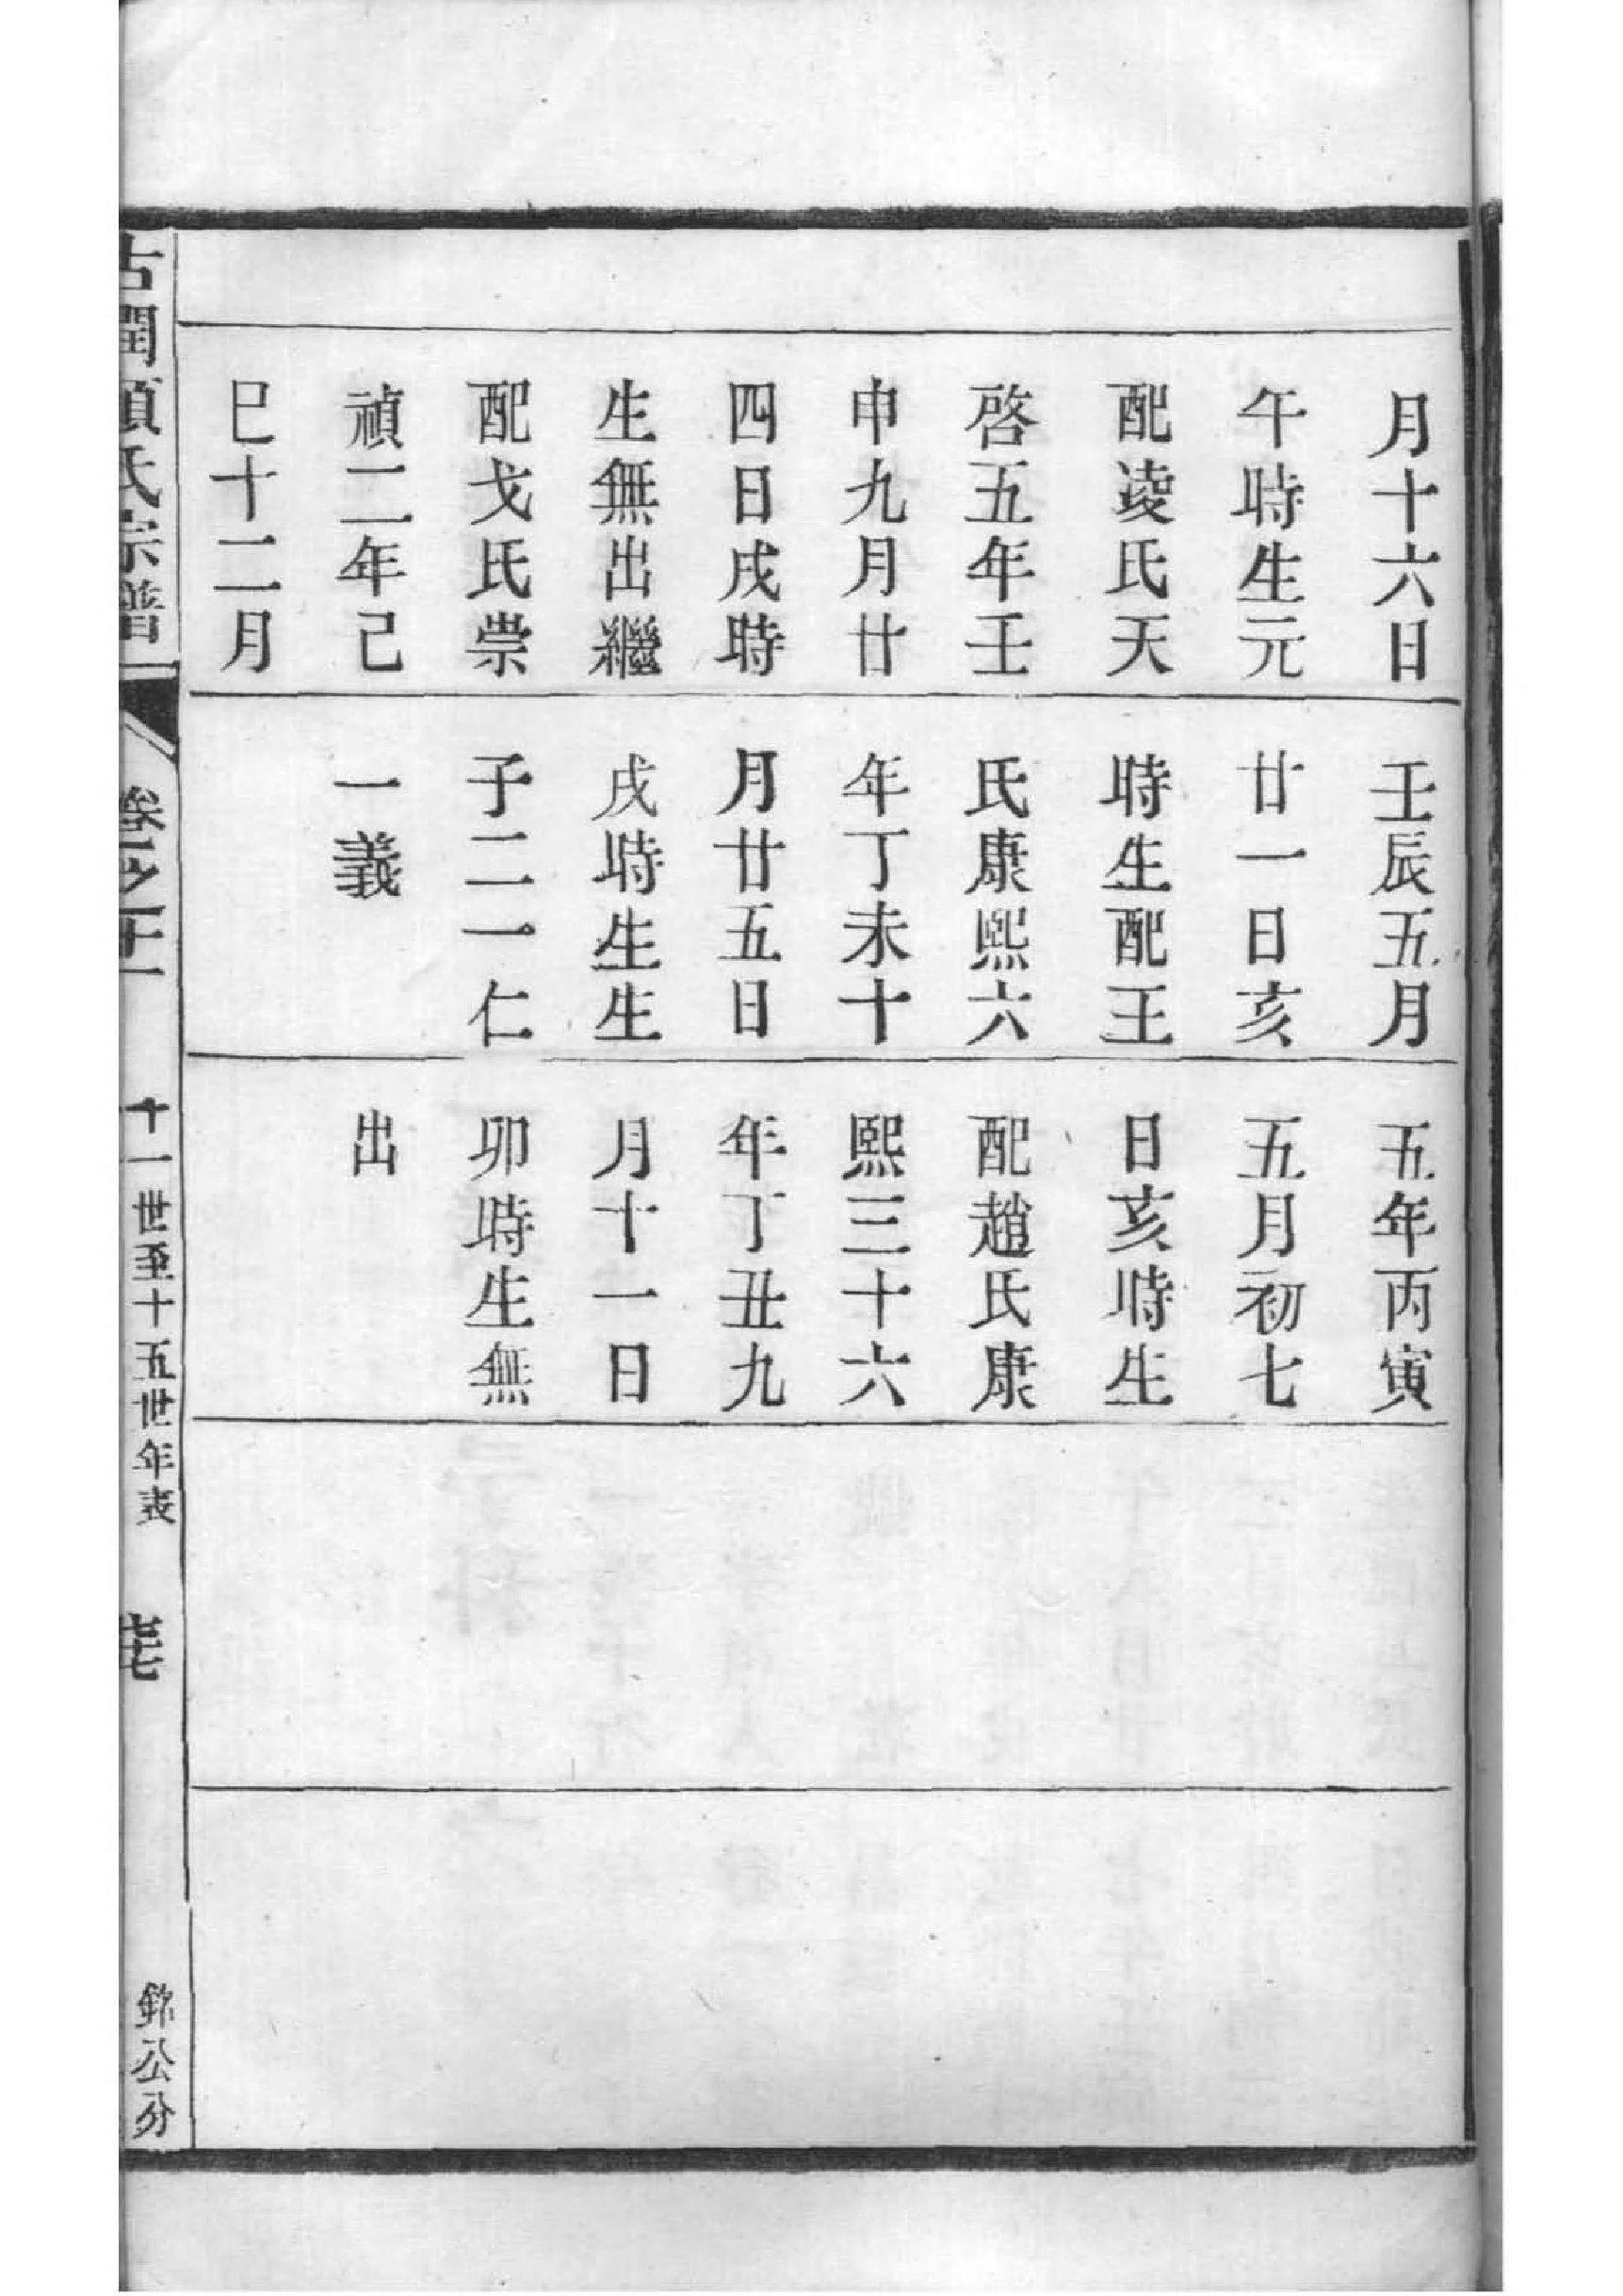 月十六日
午時生元
配淩氏天
啓五年壬
申九月廿
四日戌時
生無出繼
配戈氏崇
禎二年己
巳十二月
壬辰五月
廿一日亥
時生配王
氏康熙六
年丁未十
月廿五日
戌時生生
子二一仁
一義
五年丙寅
五月初七
日亥時生
配趙氏康
熙三十六
年丁丑九
月十一日
卯時生無
出
古潤 氏宗譜
卷之十一
十一世至十五世年表
公分